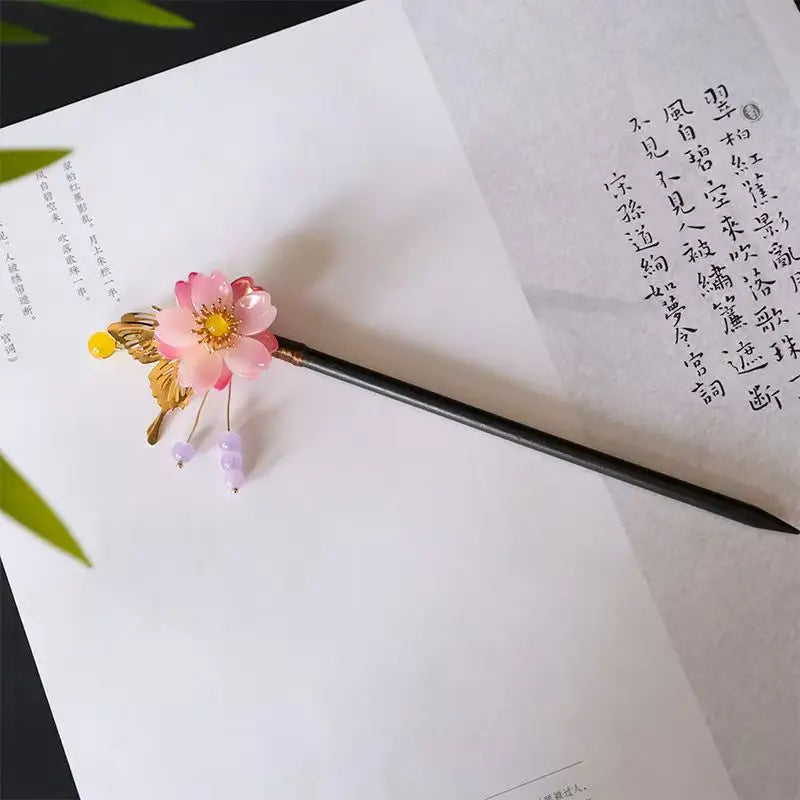 翠柏紅蕉影亂
風自碧空來吹落歌珠一
不見不見人被繡簾遮斷
宋孫道絢如夢令宮詞
翠柏红蕉影乱。月上朱栏一半。
风自碧空来，吹落歌珠一串。
见。人被绣帘遮断。
宫词）
颖过人，